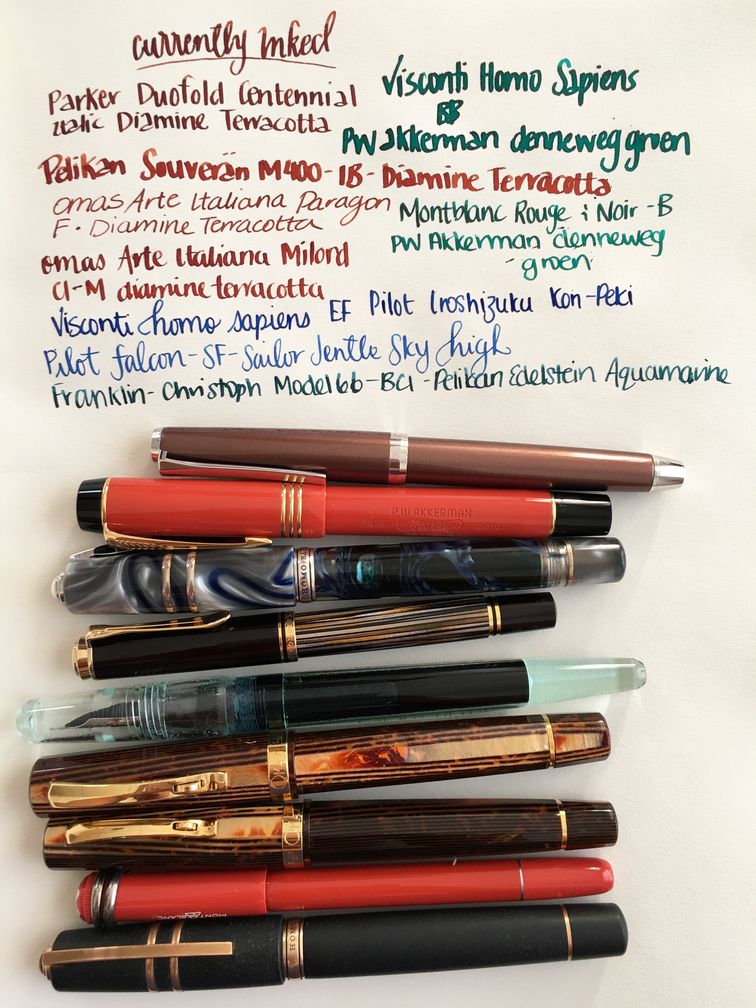 currently inked
Parker Duofold Centennial
italic Diamine Terracotta
Visconti Homo Sapiens
BB
PW akkerman denneweg groen
Pelikan Souverän M400 - IB - Diamine Terracotta
omas Arte Italiana Paragon
F • Diamine Terracotta
Montblanc Rouge i Noir - B
PW Akkerman denneweg
- groen
omas Arte Italiana Milord
CI-M diamine terracotta
Visconti homo sapiens EF Pilot Iroshizuku Kon-Peki
Pilot falcon - SF - Sailor Jentle Sky high
Franklin - Christoph Model 66 - BCI - Pelikan Edelstein Aquamarine
P.W. AKKERMAN
HOMO
MONTBLANC
HOMO